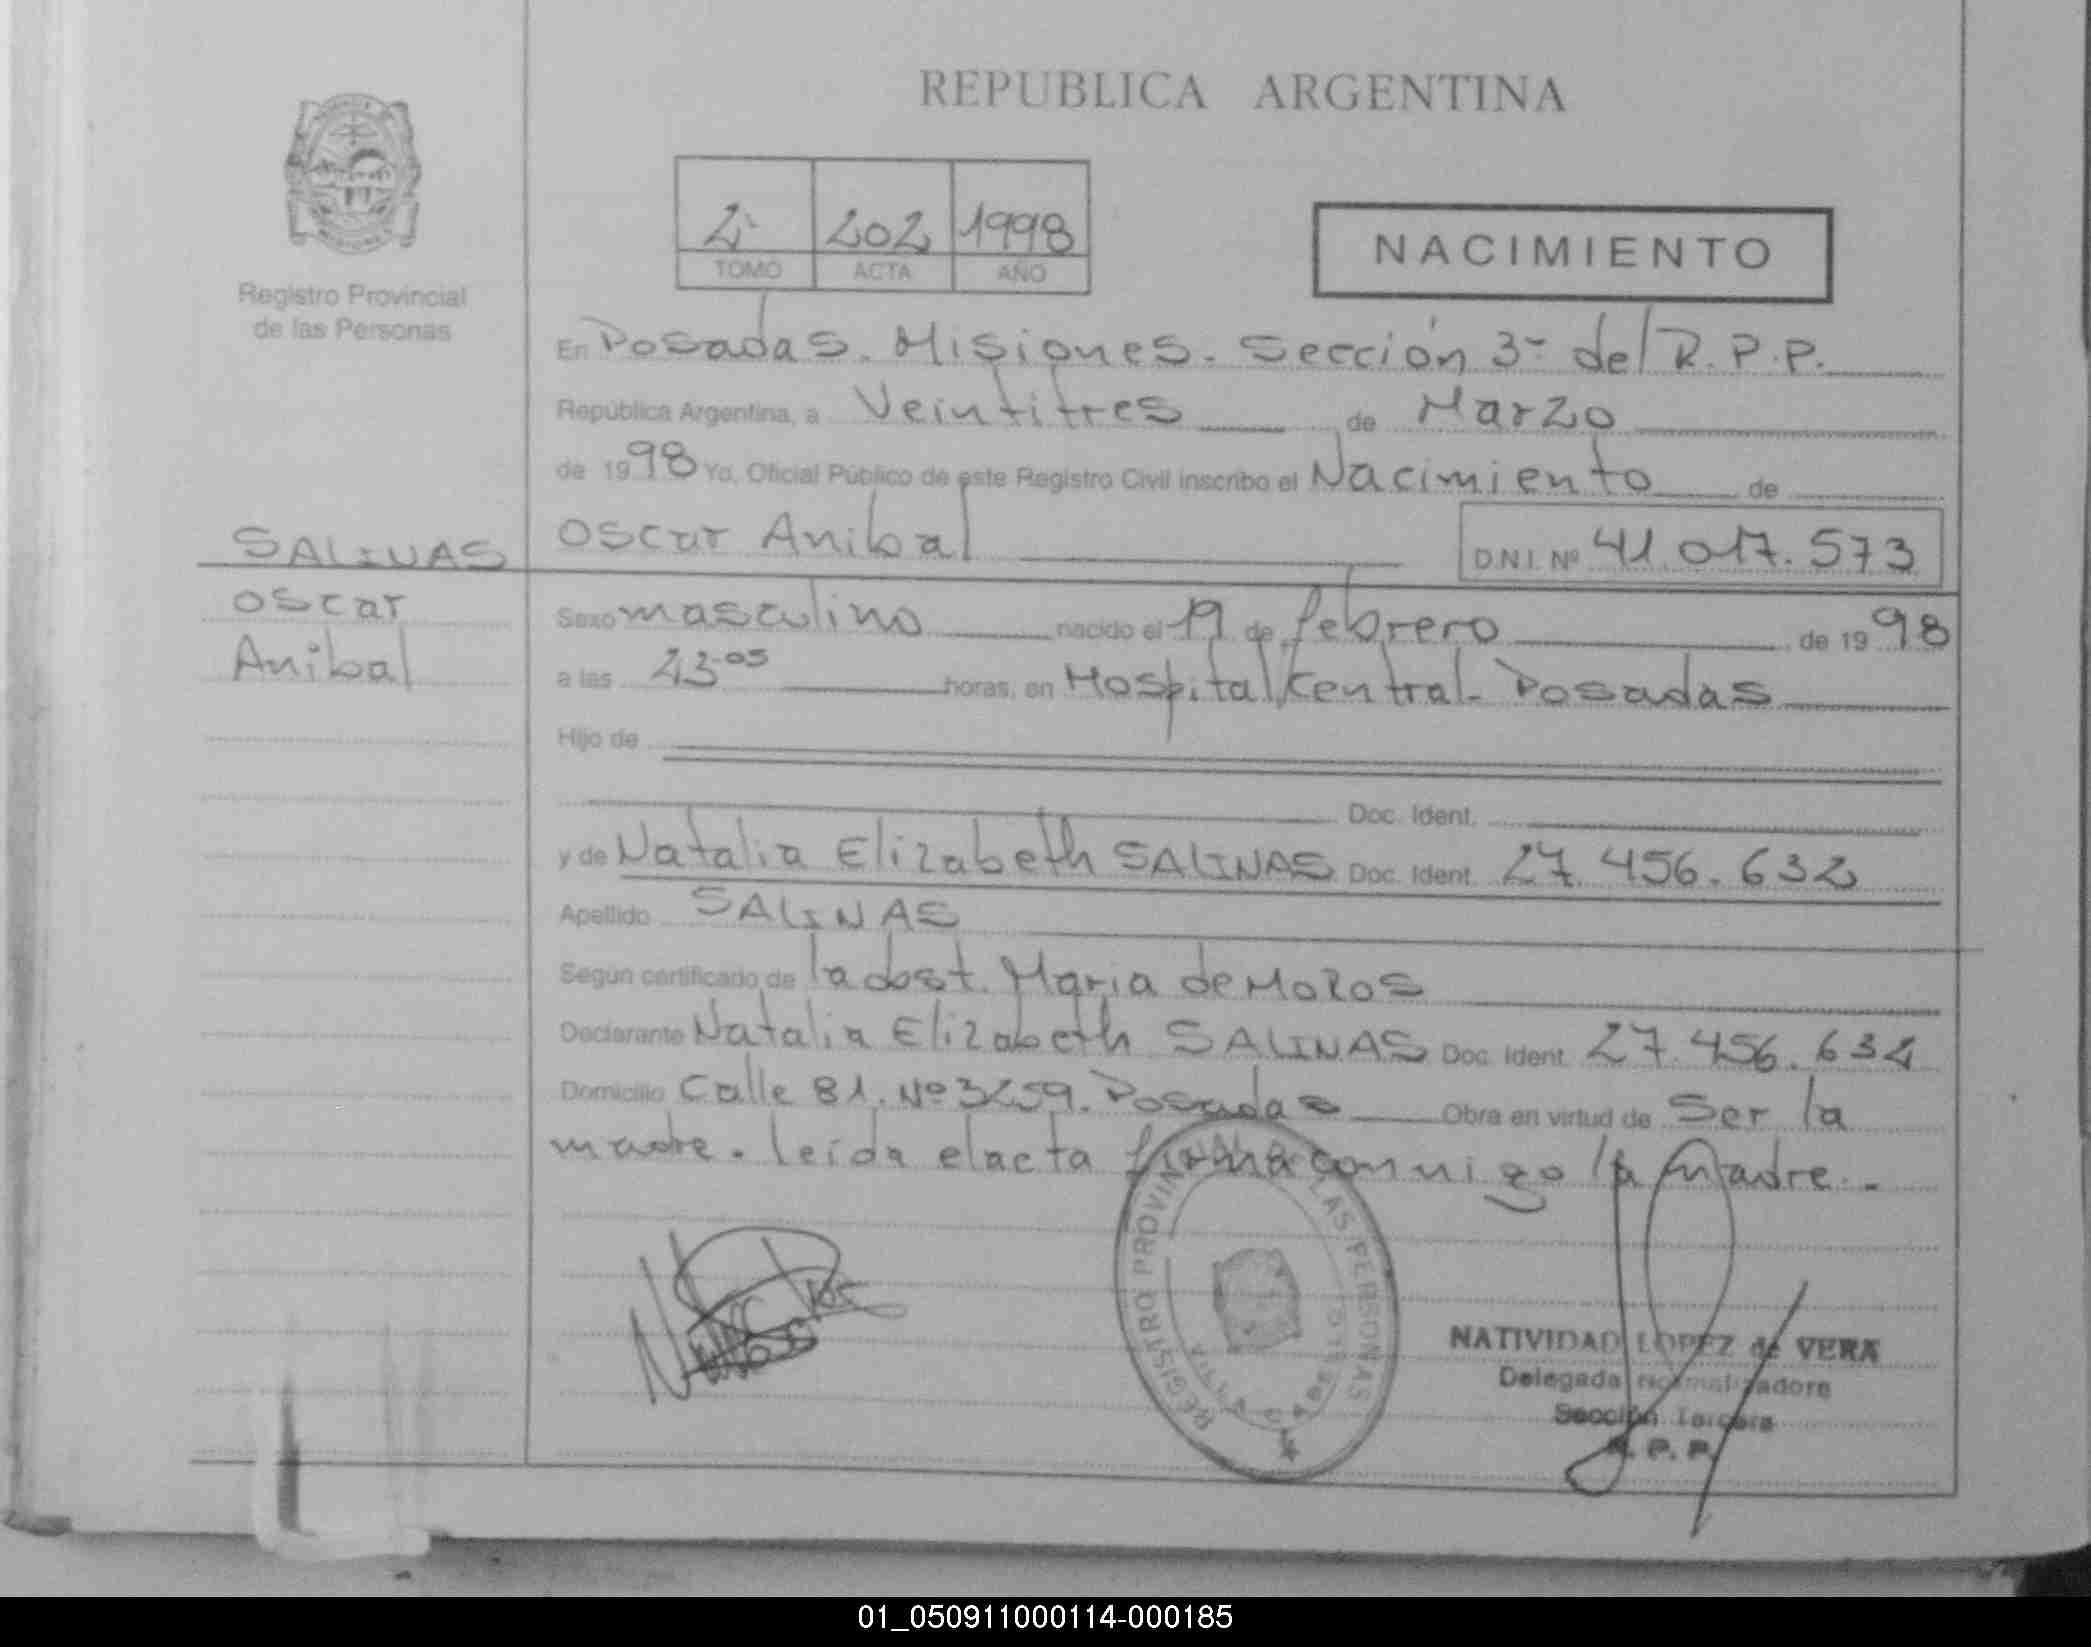 REPUBLICA ARGENTINA
Registro Provincial
de las Personas
2º 202 1998
TOMO ACTA AÑO
NACIMIENTO
En Posadas. Misiones. Sección 3º del R.P.P.
República Argentina, a Veintitres de Marzo
de 1998 Yo, Oficial Público de este Registro Civil inscribo el Nacimiento de
SALINAS
oscar
Anibal
oscar Anibal D.N.I. Nº 41.017.573
Sexo masculino nacido el 19 de febrero de 1998
a las 23:05 horas, en Hospital Central - Posadas
Hijo de
Doc. Ident.
y de Natalia Elizabeth SALINAS Doc. Ident. 27.456.632
Apellido SALINAS
Según certificado de la obst. Maria de
Declarante Natalia Elizabeth SALINAS Doc. Ident. 27.456.632
Domicilio Calle 81. Nº 3259. Posadas Obra en virtud de Ser la
madre. leída el acta firma conmigo la Madre.-
REGISTRO PROVINCIAL LAS PERSONAS
NATIVIDAD LOPEZ de VERA
Delegada Normalizadora
Sección Tercera
R. P. P.
01_050911000114-000185